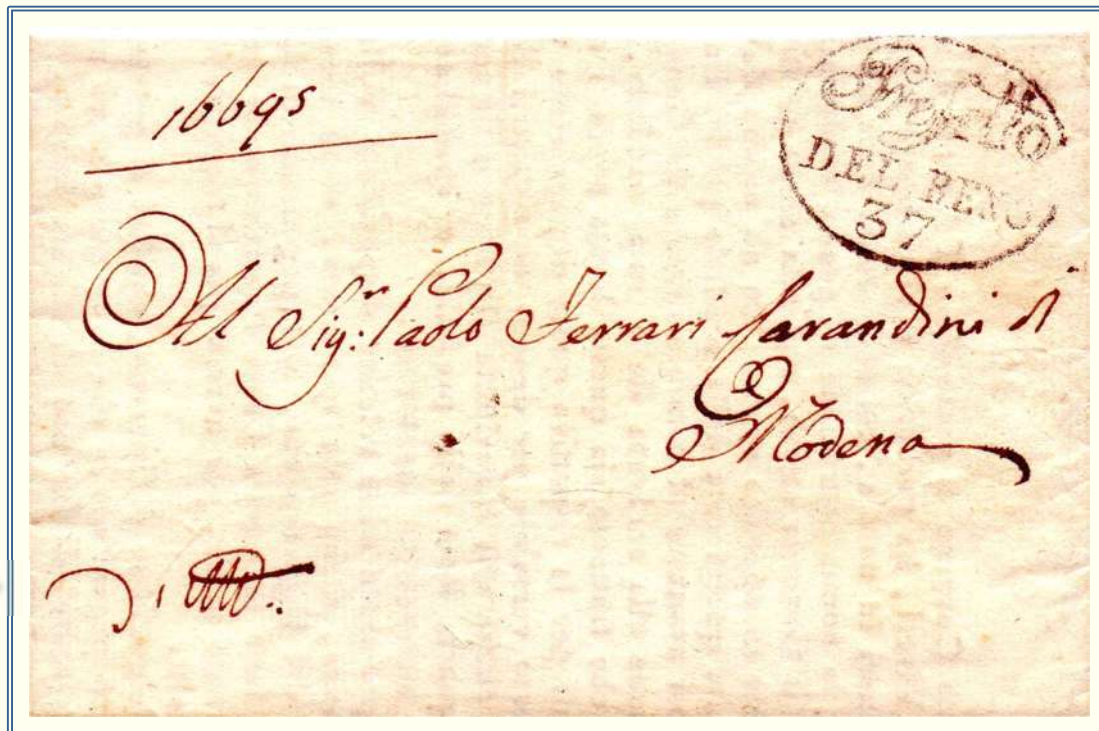 16695
Prefetto
DEL RENO
37
Al Sig.r Paolo Ferrari Carandini di
Modena